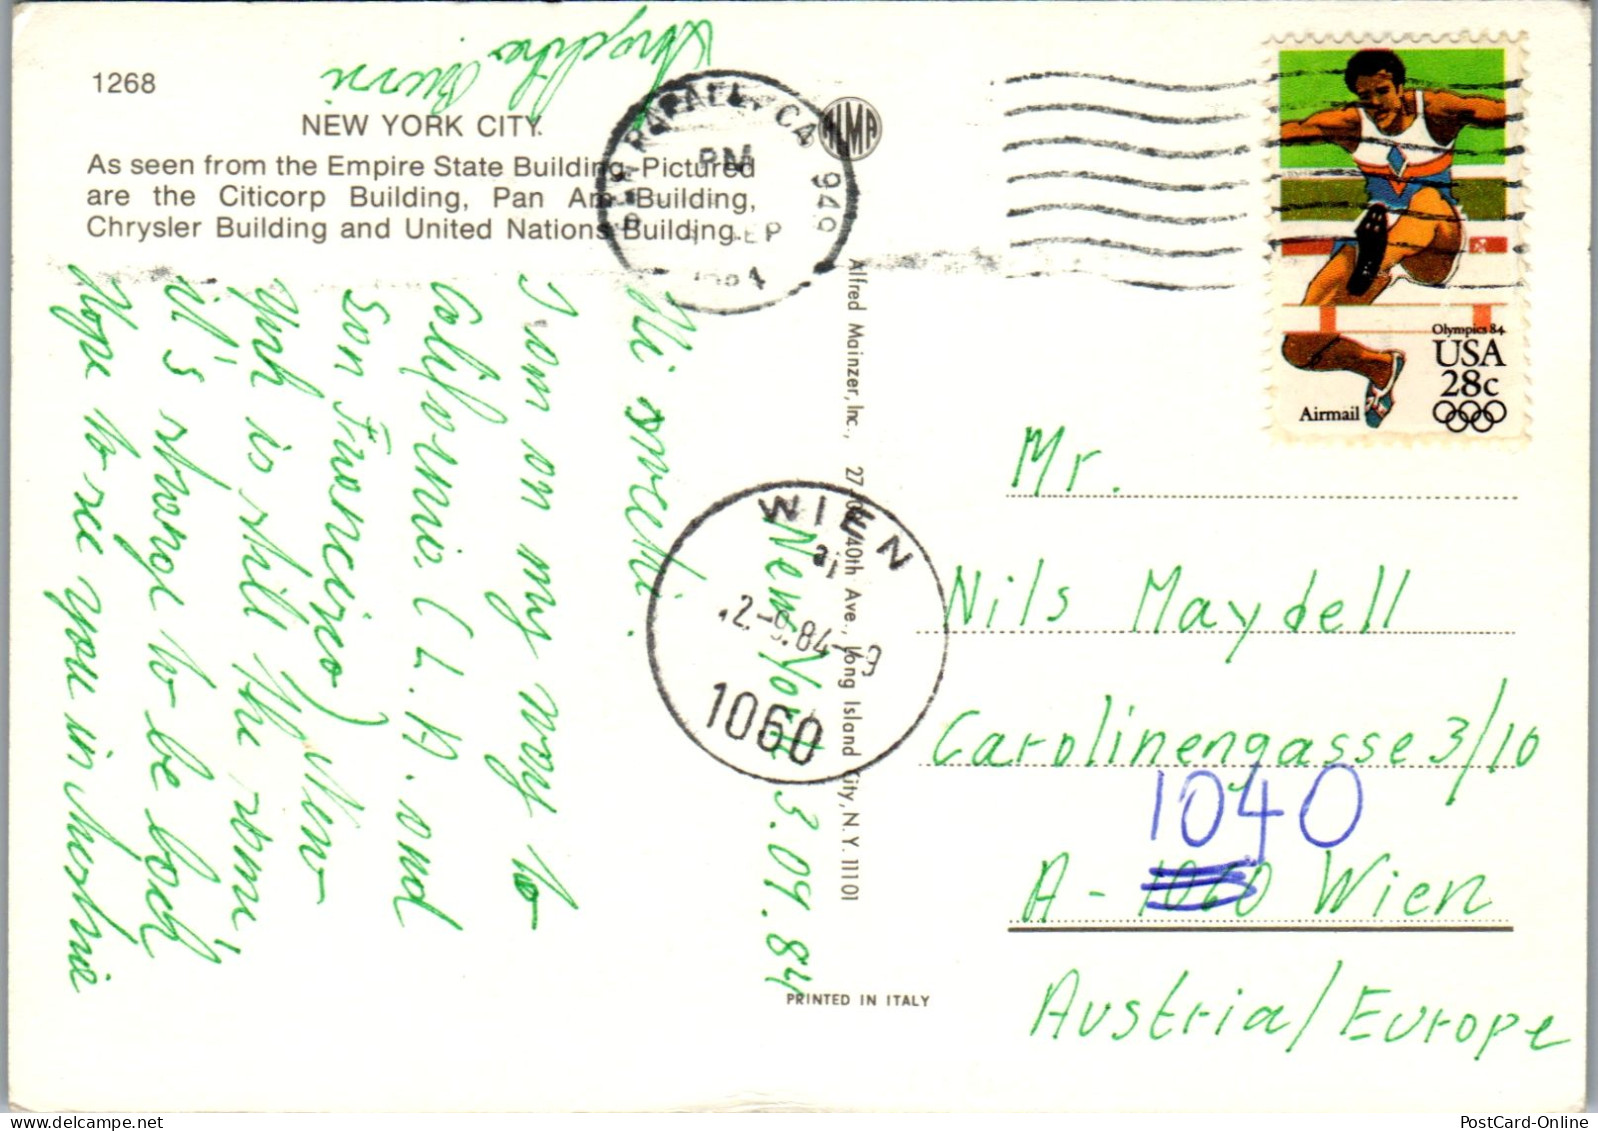 1268
NEW YORK CITY.
As seen from the Empire State Building. Pictured
are the Citicorp Building, Pan Am Building,
Chrysler Building and United Nations Building.
New York 3.09.84
Hi sweeti.
I am on my way to
California (L.A. and
San Francisco) New
York is still the same
it's strange to be back
Hope to see you in
RAFAEL, CA 949
PM
SEP
1984
Alfred Mainzer, Inc., 27 08 40th Ave., Long Island City, N.Y. 11101
PRINTED IN ITALY
WIEN
2.-9.84-9
1060
Olympics 84
USA
28c
Airmail
Mr.
Nils Maydell
Carolinengasse 3/10
1040
A - 1060 Wien
Austria/Europe
PostCard-Online